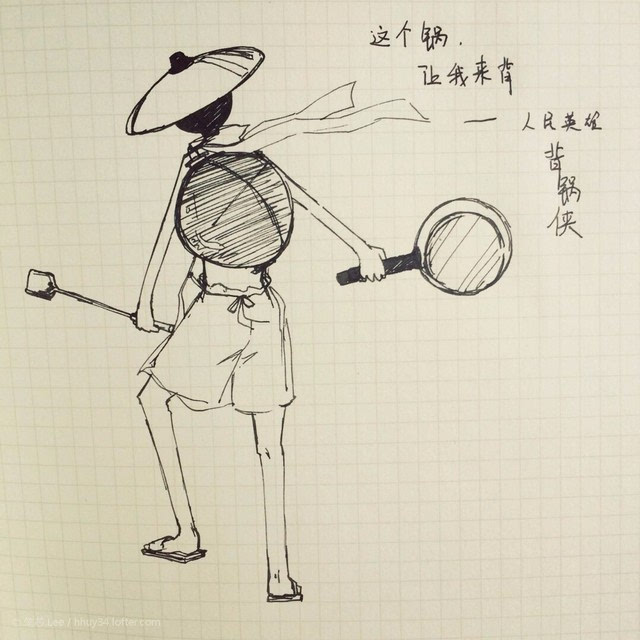 这个锅，
让我来背
— 人民英雄
背
锅
侠
Lee / hhuy34.lofter.com